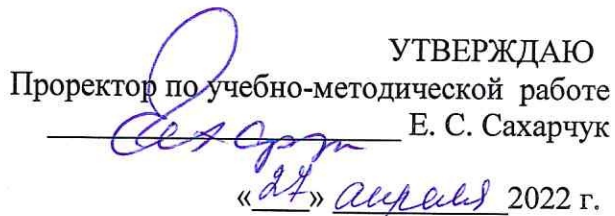 УТВЕРЖДАЮ
Проректор по учебно-методической работе
Е. С. Сахарчук
«27» апреля 2022 г.